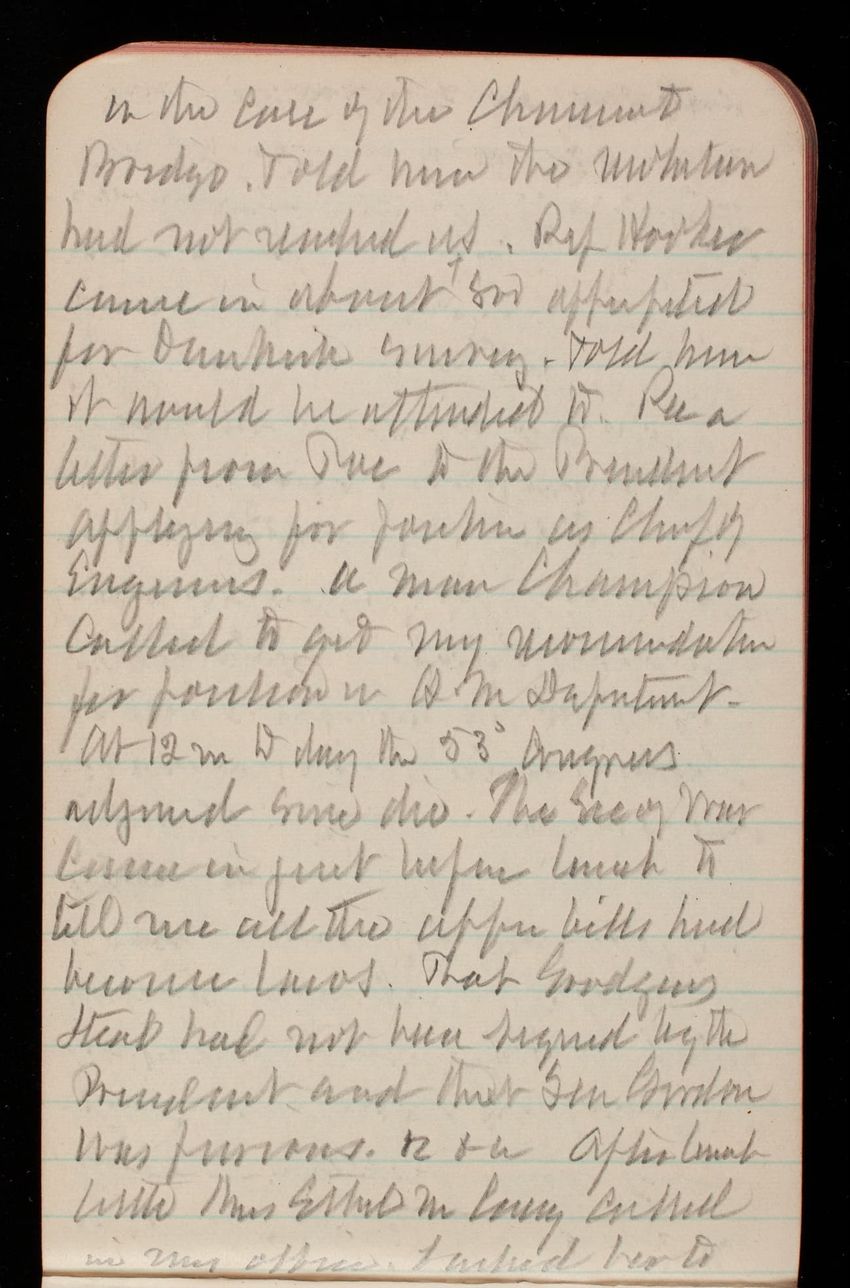 in the case of the
Bridge. Told him the
had not reached us. Rep Hooker
came in about
for Dunkirk survey. Told him
it would be attended to. Rec a
letter from Poe to the President
applying for position as Chf of
Engineers. A man Champion
Called to get my
for position in Q M
At 12 m to day the 53° Congress
sine die. The Sec of War
Came in just before lunch to
tell me all the bills had
become laws. That
had not been signed by the
President and that Gen Gordon
was furious. After lunch
little Miss Ethel called
in my office. I asked her to